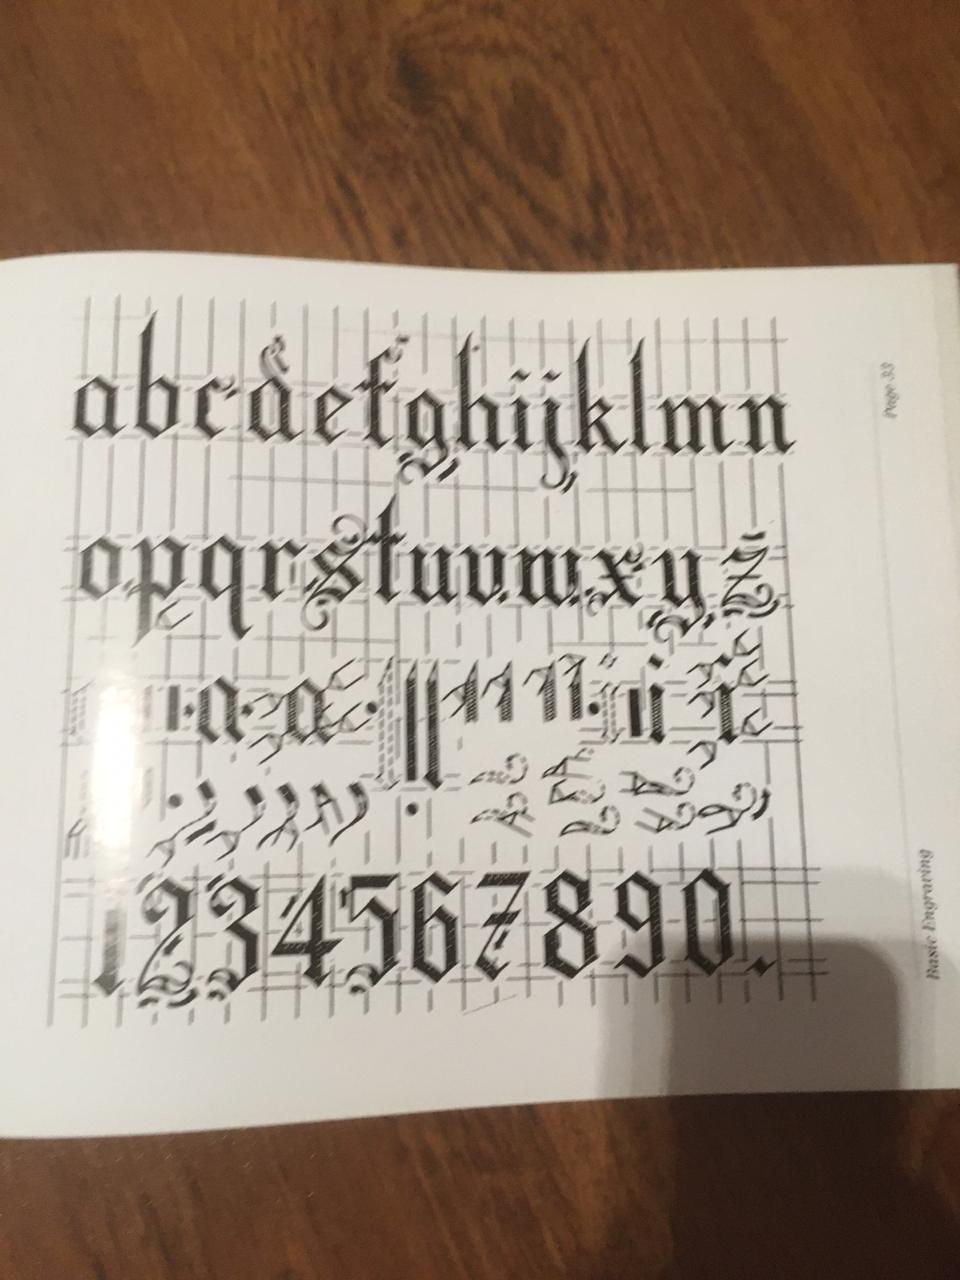 abcdefghijklmn
opqrstuvwxyz
1234567890.
Page 33
Basic Engraving